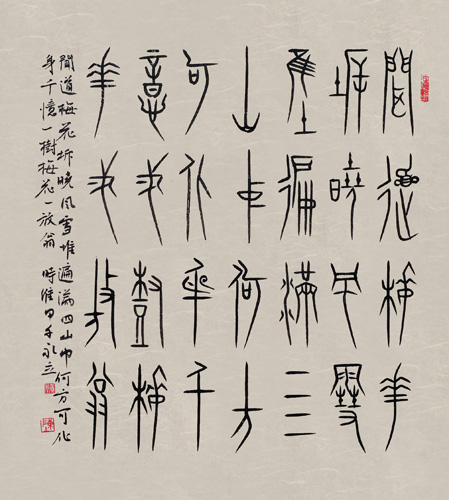 聞道梅花
坼曉風雪
堆遍滿四
山中何方
可化身千
意弌樹梅
花弌放翁
聞道梅花坼曉風雪堆遍滿四山中何方可化
身千憶一樹梅花一放翁 時維甲午永立